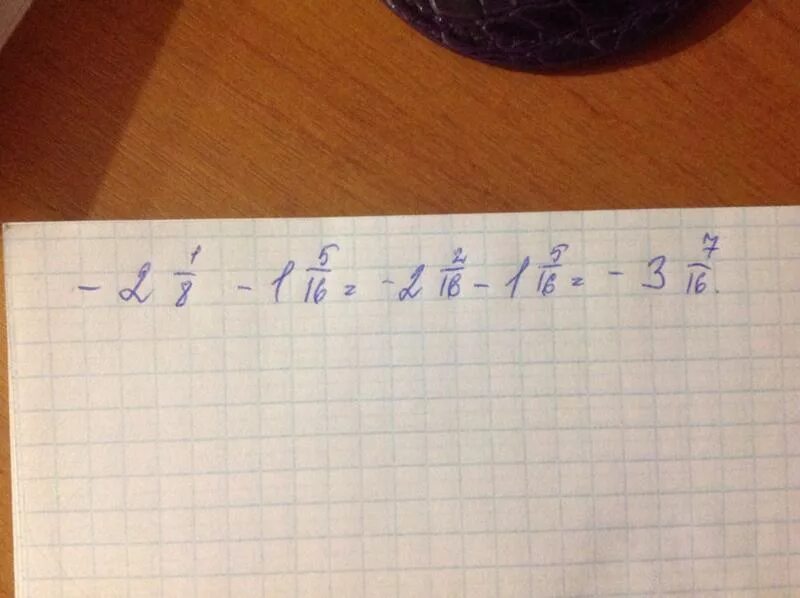 - 2 1/8 - 1 5/16 = - 2 2/16 - 1 5/16 = - 3 7/16.